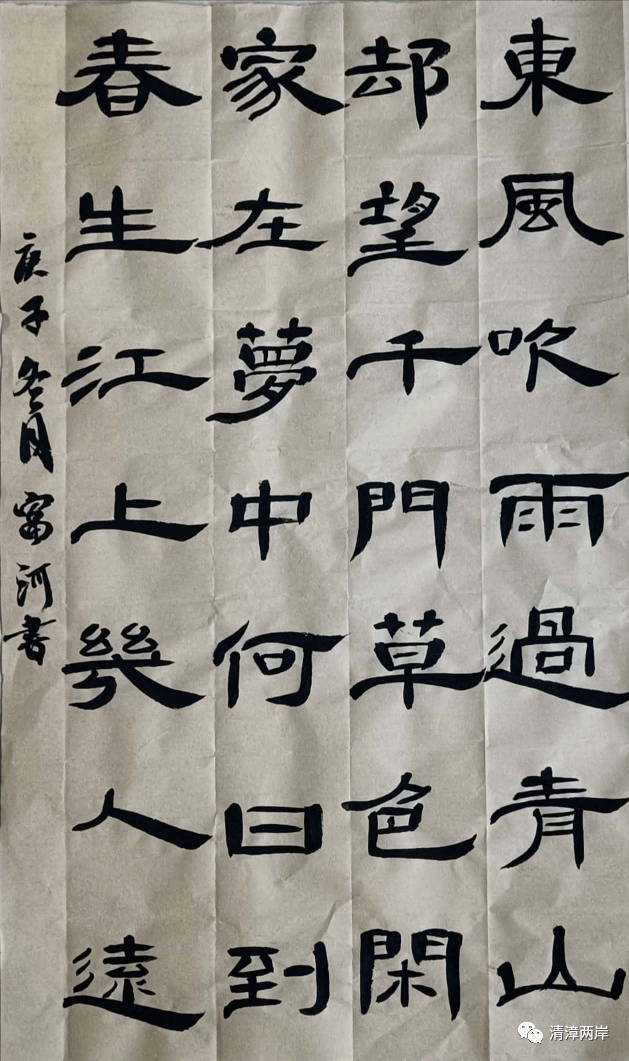 東風吹雨過青山
却望千門草色閑
家在夢中何日到
春生江上幾人遠
庚子冬月富河書
清漳两岸